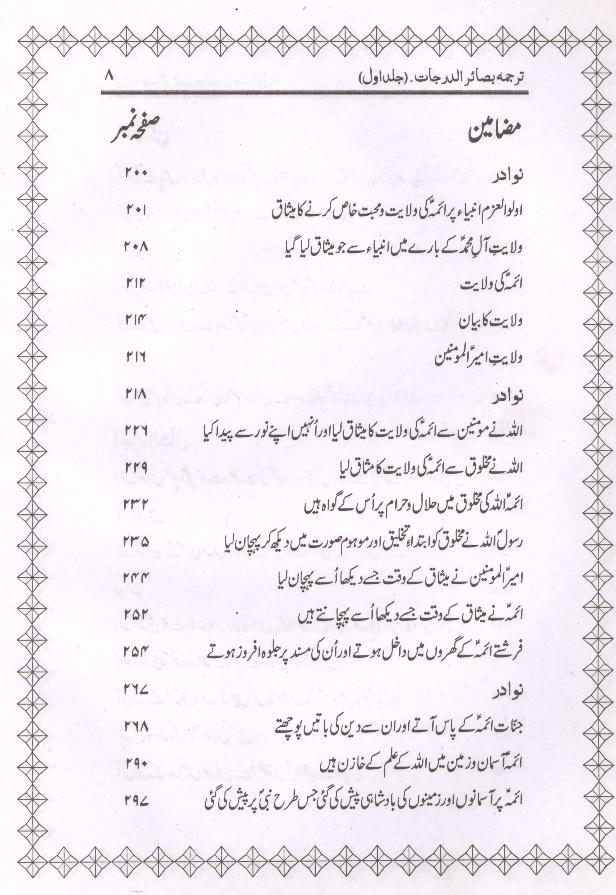 ترجمہ بصائر الدرجات۔ (جلد اول) ۸
مضامین صفحہ نمبر
نوادر ۲۰۰
اولوالعزم انبیاء پر ائمہؑ کی ولایت و محبت خاص کرنے کا میثاق ۲۰۱
ولایتِ آلِ محمدؑ کے بارے میں انبیاء سے جو میثاق لیا گیا ۲۰۸
ائمہؑ کی ولایت ۲۱۲
ولایت کا بیان ۲۱۴
ولایتِ امیرؑ المومنین ۲۱۶
نوادر ۲۱۸
اللہ نے مومنین سے ائمہؑ کی ولایت کا میثاق لیا اور اُنہیں اپنے نور سے پیدا کیا ۲۲۶
اللہ نے مخلوق سے ائمہؑ کی ولایت کا مثاق لیا ۲۲۹
ائمہؑ اللہ کی مخلوق میں حلال و حرام پر اُس کے گواہ ہیں ۲۳۲
رسولؐ اللہ نے مخلوق کو ابتداءِ تخلیق اور موہوم صورت میں دیکھ کر پہچان لیا ۲۳۵
امیرؑ المومنین نے میثاق کے وقت جسے دیکھا اُسے پہچان لیا ۲۴۴
ائمہؑ نے میثاق کے وقت جسے دیکھا اُسے پہچانتے ہیں ۲۵۲
فرشتے ائمہؑ کے گھروں میں داخل ہوتے اور اُن کی مسند پر جلوہ افروز ہوتے ۲۵۴
نوادر ۲۶۷
جنّات ائمہؑ کے پاس آتے اور ان سے دین کی باتیں پوچھتے ۲۶۸
ائمہؑ آسمان و زمین میں اللہ کے علم کے خازن ہیں ۲۹۰
ائمہؑ پر آسمانوں اور زمینوں کی بادشاہی پیش کی گئی جس طرح نبیؐ پر پیش کی گئی ۲۹۷